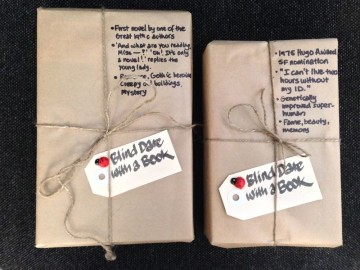 •First novel by one of the
Great 19th c authors
•'And what are you reading,
Miss —?' 'Oh! It's only
a novel!' replies the
young lady.
• Gothic heroine
creepy old buildings,
mystery
Blind Date
with a Book
•1975 Hugo Award
SF nomination
•"I can't live two
hours without
my ID."
•Genetically
improved super-
human
•Fame, beauty,
memory
Blind Date
with a Book